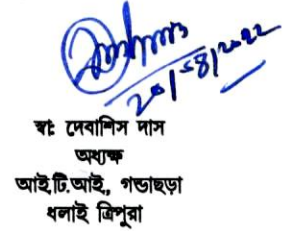 20/08/2022
স্বা: দেবাশিস দাস
অধ্যক্ষ
আই.টি.আই., গন্ডাছড়া
ধলাই ত্রিপুরা